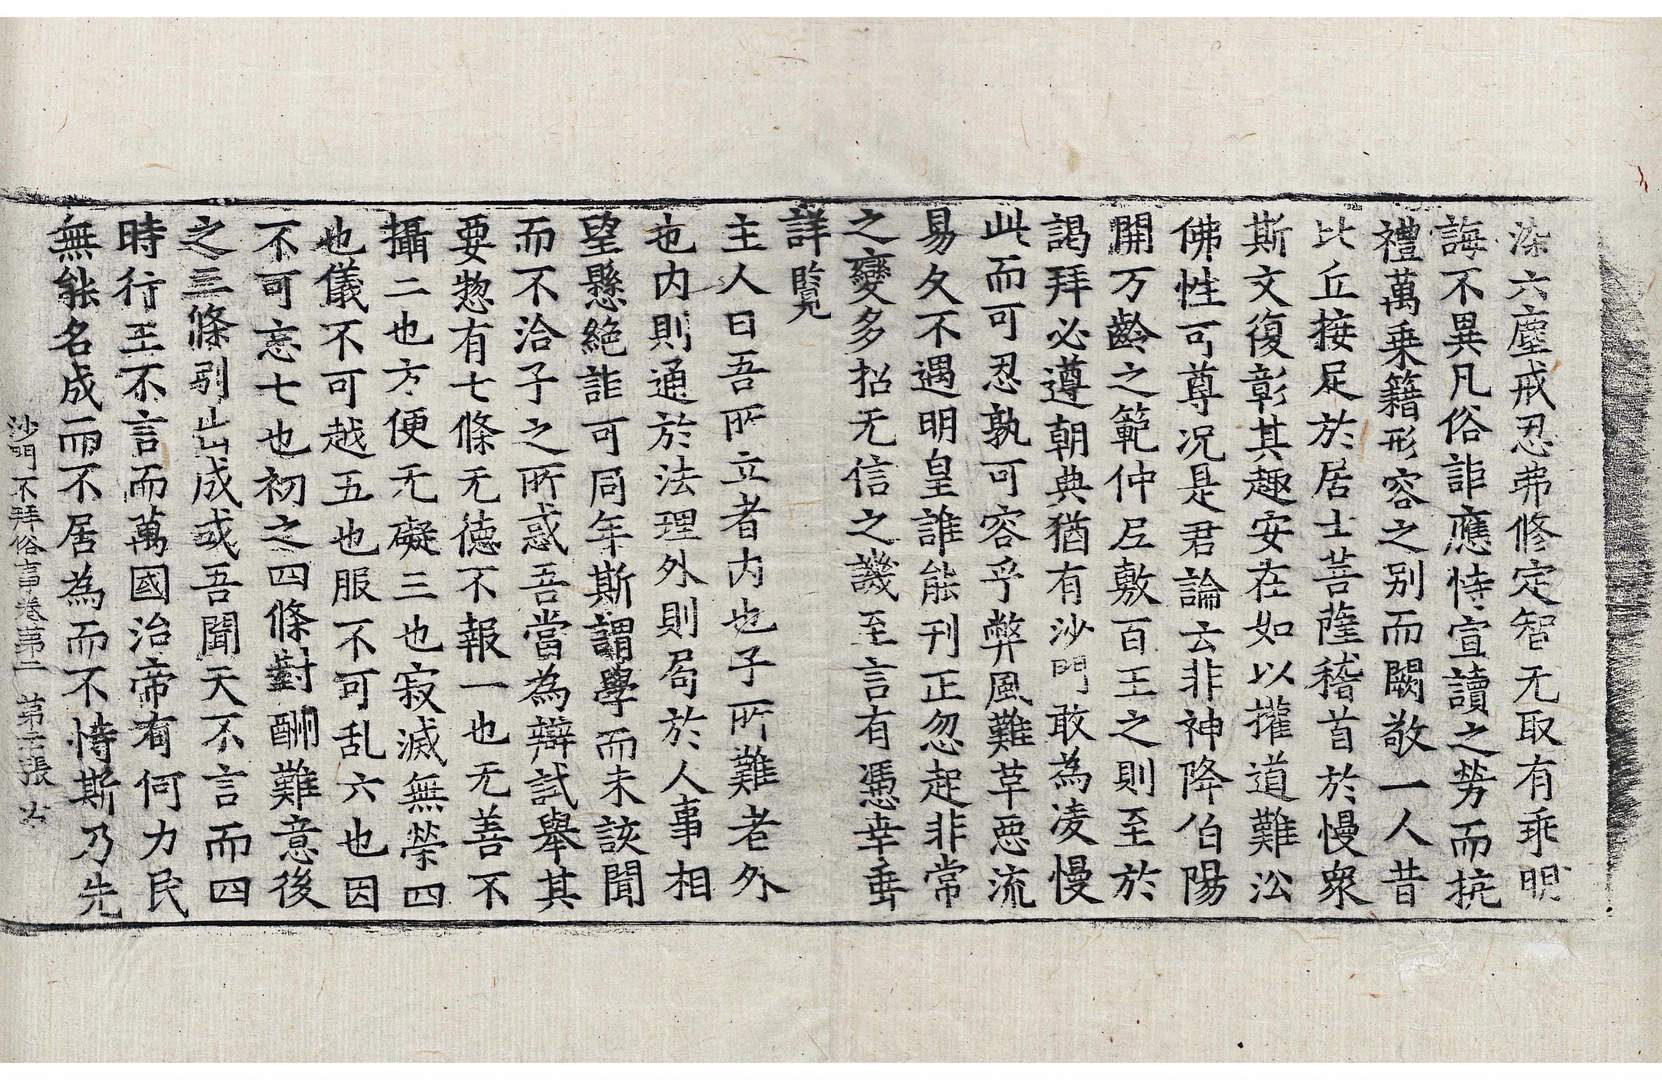 染六塵戒忍弗修定智无取有乖明
誨不異凡俗詎應恃宣讀之勞而抗
禮萬乗籍形容之别而闕敬一人昔
比丘接足於居士菩薩稽首於慢衆
斯文復彰其趣安在如以權道難沿
佛性可尊况是君論云非神降伯陽
開万齡之範仲尼敷百王之則至於
謁拜必遵朝典猶有沙門敢為凌慢
此而可忍孰可容乎弊風難革惡流
易久不遇明皇誰能刊正忽起非常
之變多招无信之譏至言有憑幸垂
詳覧
主人曰吾所立者内也子所難者外
也内則通於法理外則局於人事相
望懸絶詎可同年斯謂學而未該聞
而不洽子之所惑吾當為辯試舉其
要惣有七條无德不報一也无善不
攝二也方便无礙三也寂滅無榮四
也儀不可越五也服不可乱六也因
不可忘七也初之四條對酬難意後
之三條引出成或吾聞天不言而四
時行王不言而萬國治帝有何力民
無能名成而不居為而不恃斯乃先
沙門不拜俗事卷第二 第二張 岁